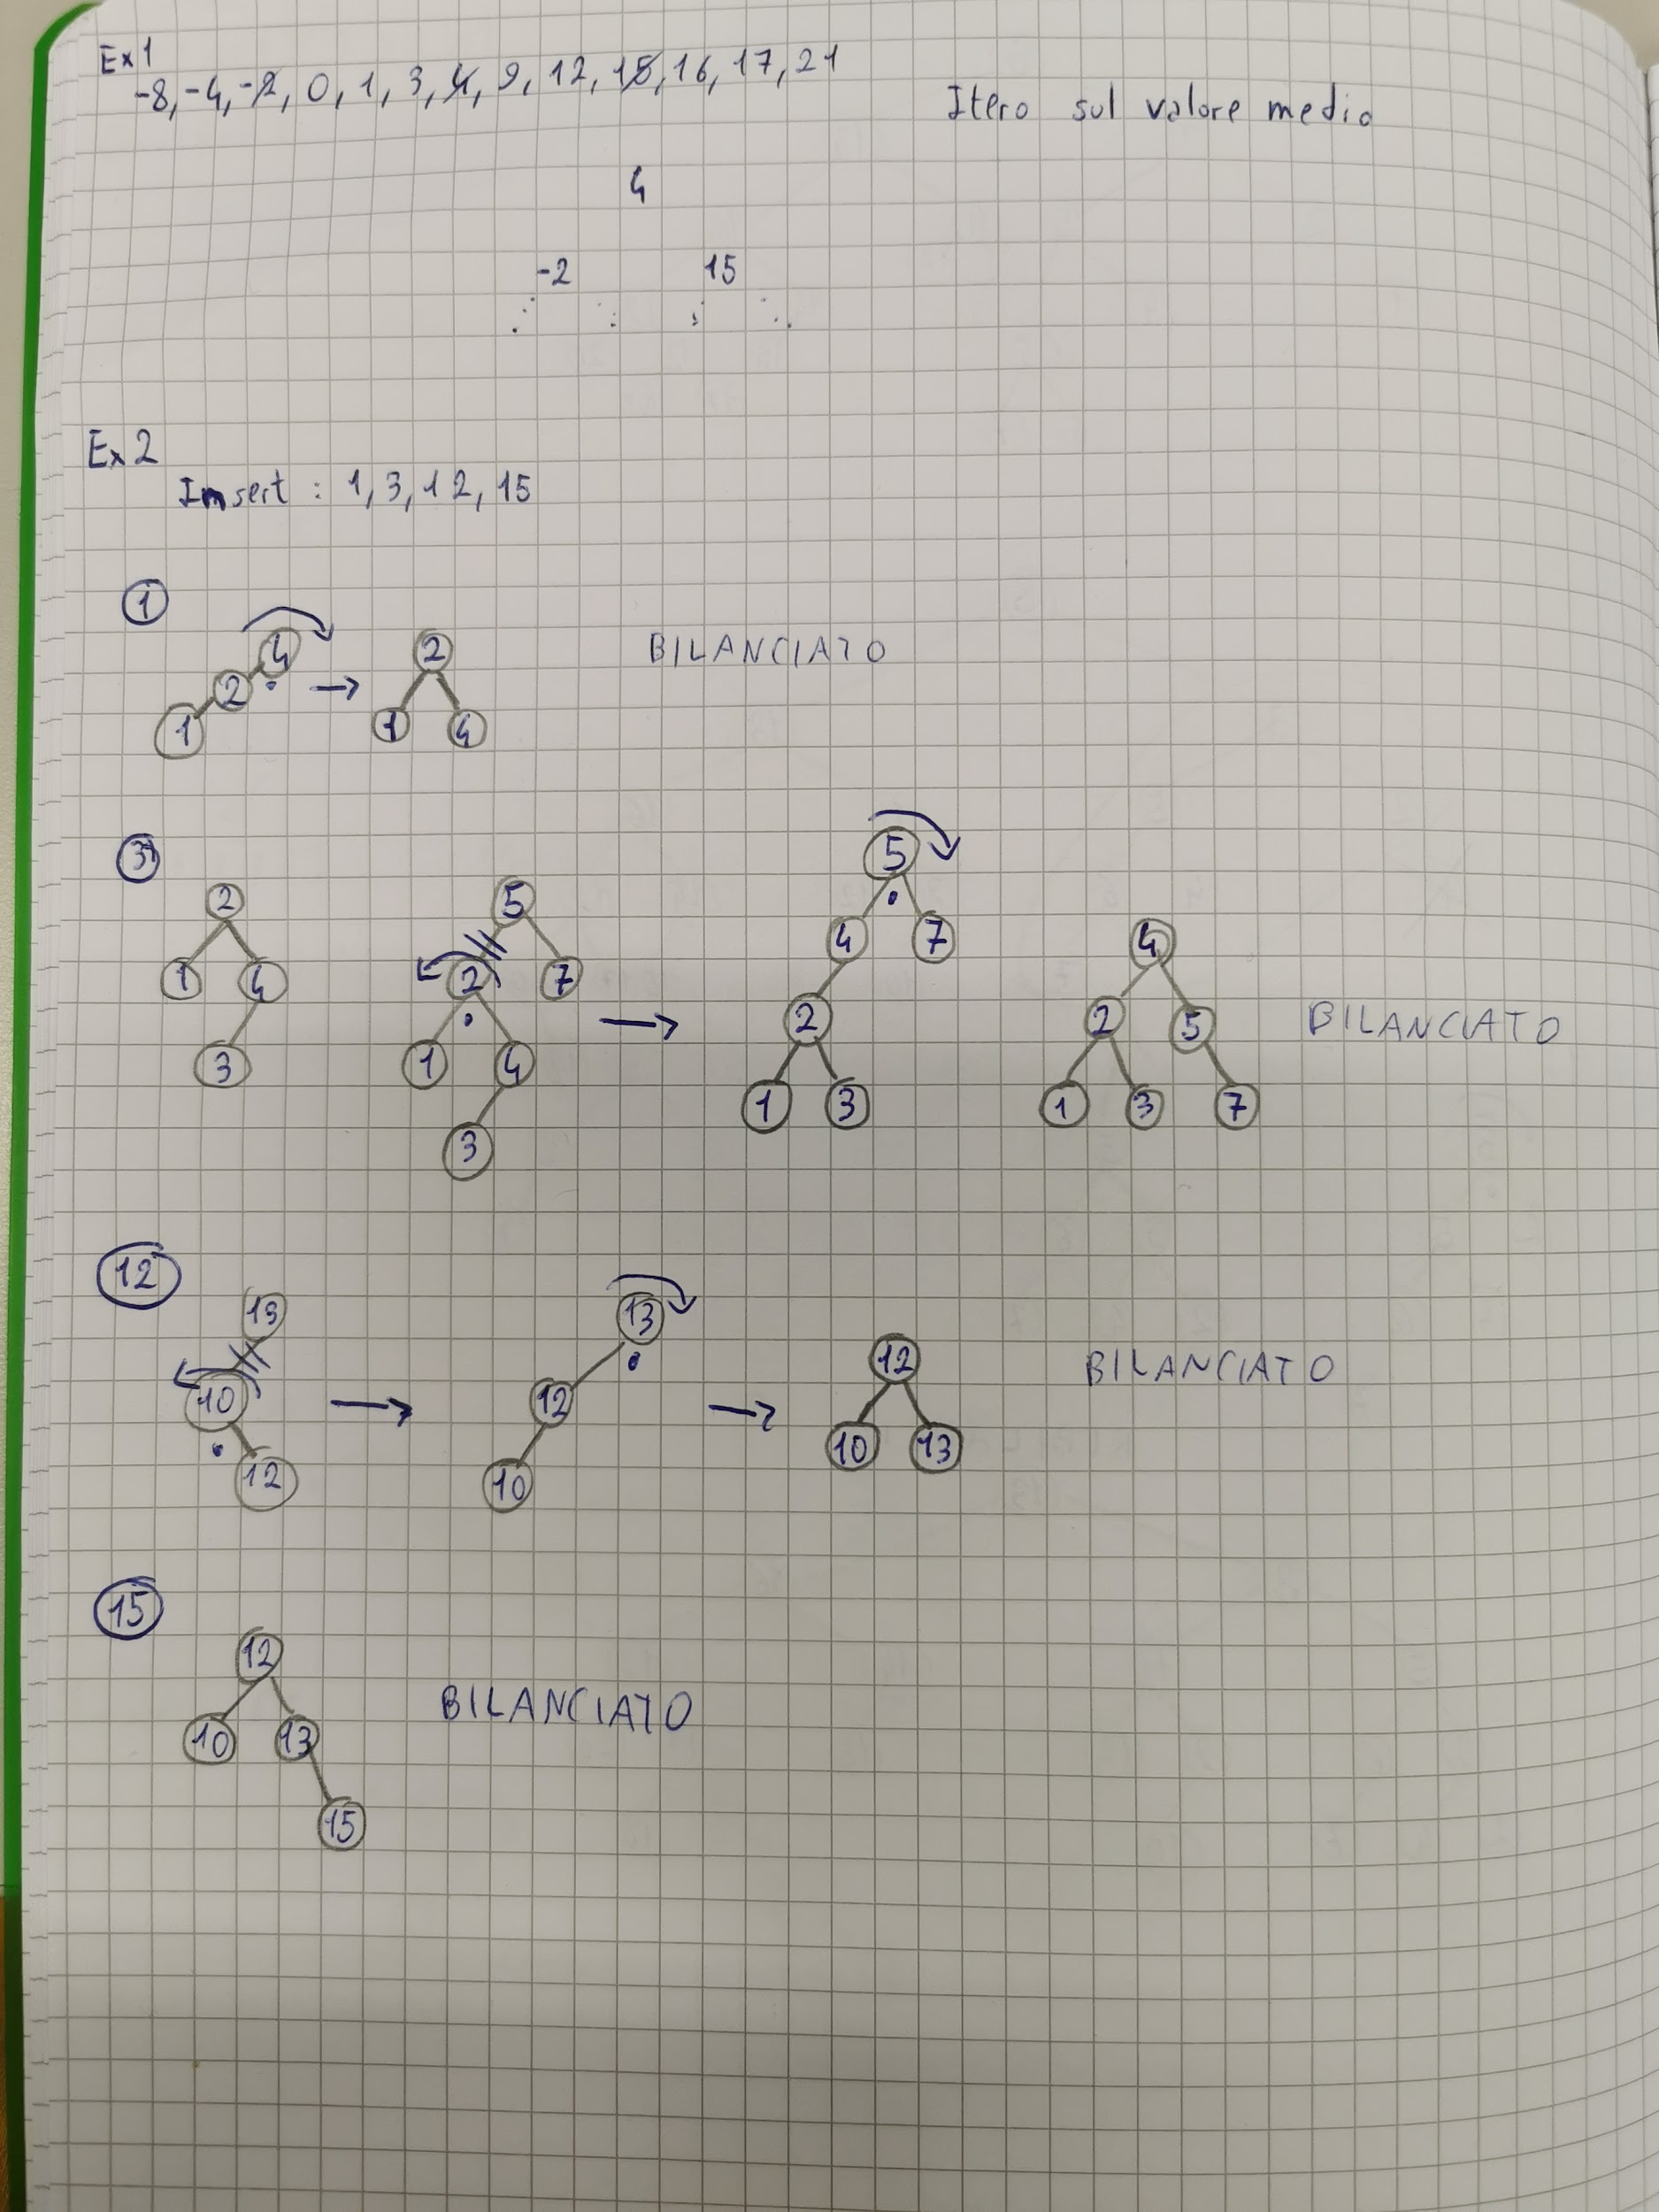 Ex1
-8, -4, -2, 0, 1, 3, 4, 9, 12, 15, 16, 17, 21
Itero sul valore medio
4
-2 15
Ex2
Insert : 1, 3, 12, 15
1
4
2
1
→
2
1 4
BILANCIATO
3
2
1 4
3
5
2 7
1 4
3
→
5
4 7
2
1 3
4
2 5
1 3 7
BILANCIATO
12
13
10
12
→
13
12
10
→
12
10 13
BILANCIATO
15
12
10 13
15
BILANCIATO